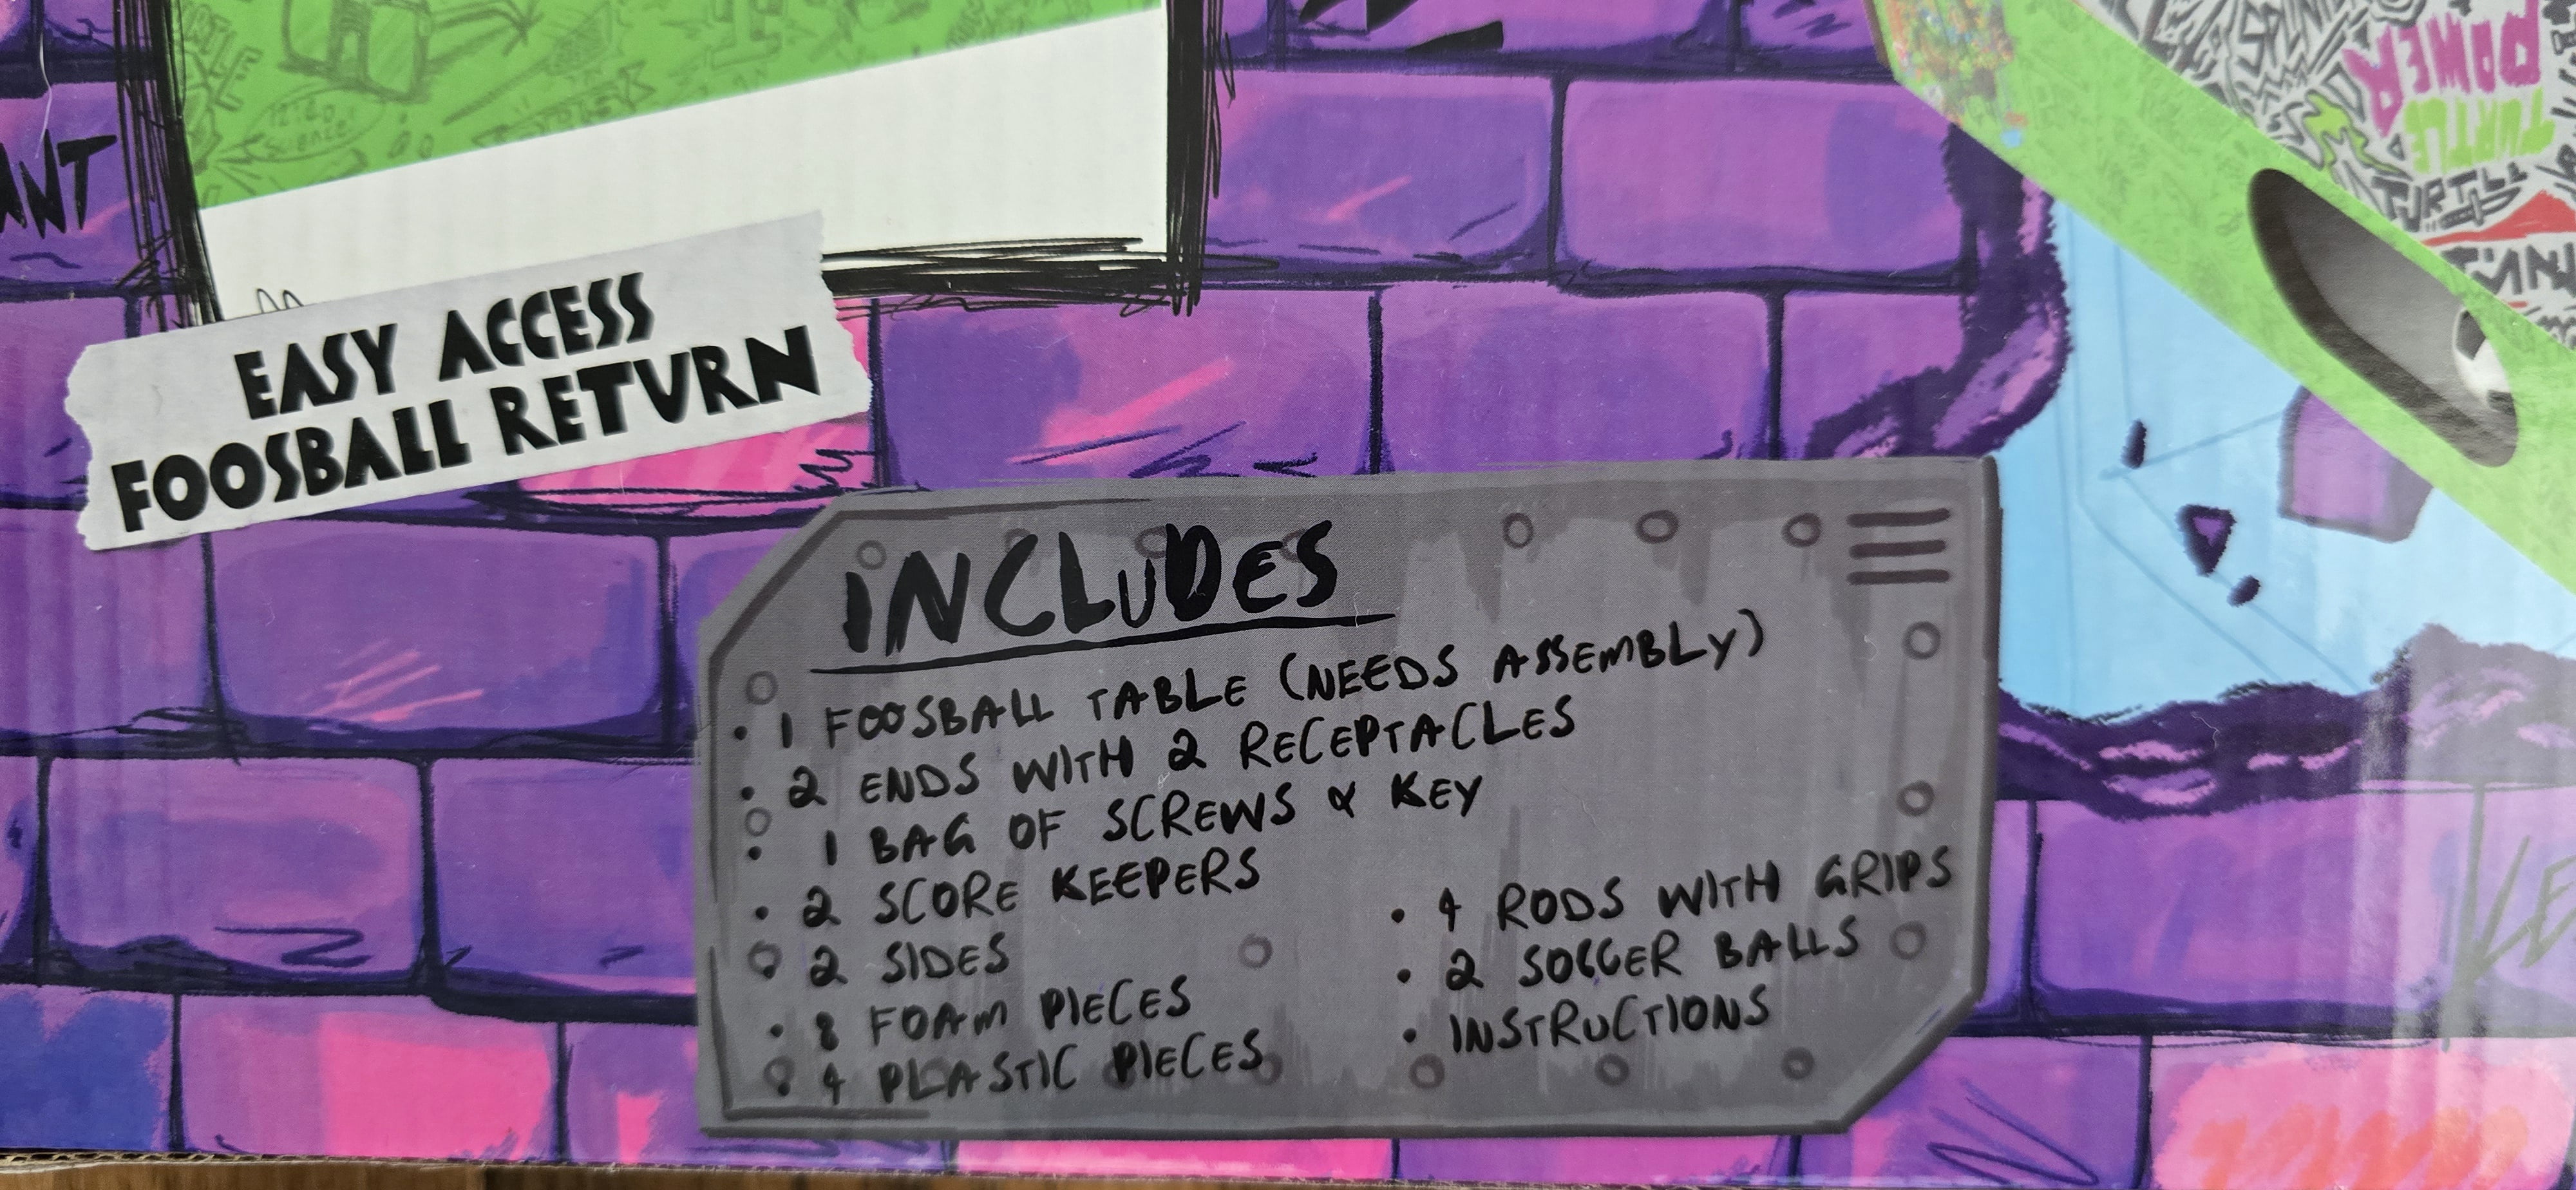 ANT
EASY ACCESS
FOOSBALL RETURN
POWER
TURTLE
TURTLE
INCLUDES
• 1 FOOSBALL TABLE (NEEDS ASSEMBLY)
• 2 ENDS WITH 2 RECEPTACLES
• 1 BAG OF SCREWS & KEY
• 2 SCORE KEEPERS
• 2 SIDES
• 8 FOAM PIECES
• 4 PLASTIC PIECES
• 4 RODS WITH GRIPS
• 2 SOCCER BALLS
• INSTRUCTIONS